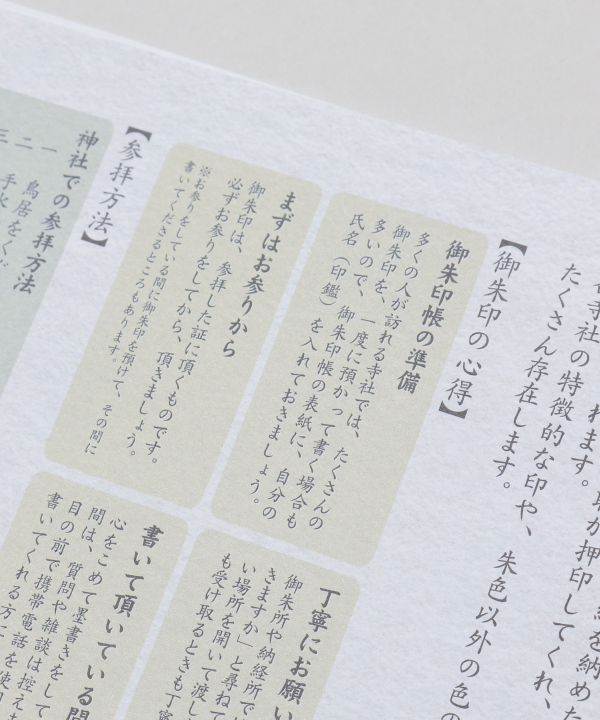 寺社の特徴的な印や、朱色以外の色の
たくさん存在します。
【御朱印の心得】
御朱印帳の準備
多くの人が訪れる寺社では、たくさんの
御朱印を、一度に預かって書く場合も
多いので、御朱印帳の表紙に、自分の
氏名（印鑑）を入れておきましょう。
まずはお参りから
御朱印は、参拝した証に頂くものです。
必ずお参りをしてから、頂きましょう。
※お参りをしている間に御朱印を預けて、その間に
書いてくださるところもあります。
丁寧にお願い
御朱所や納経所で
きますか」と尋ねて
い場所を開いて渡し
も受け取るときも丁寧
書いて頂いている間
心をこめて墨書きをして
間は、質問や雑談は控え
目の前で携帯電話を使用
書いてくれる方に
【参拝方法】
神社での参拝方法
一 鳥居をくぐ
二 手水
三